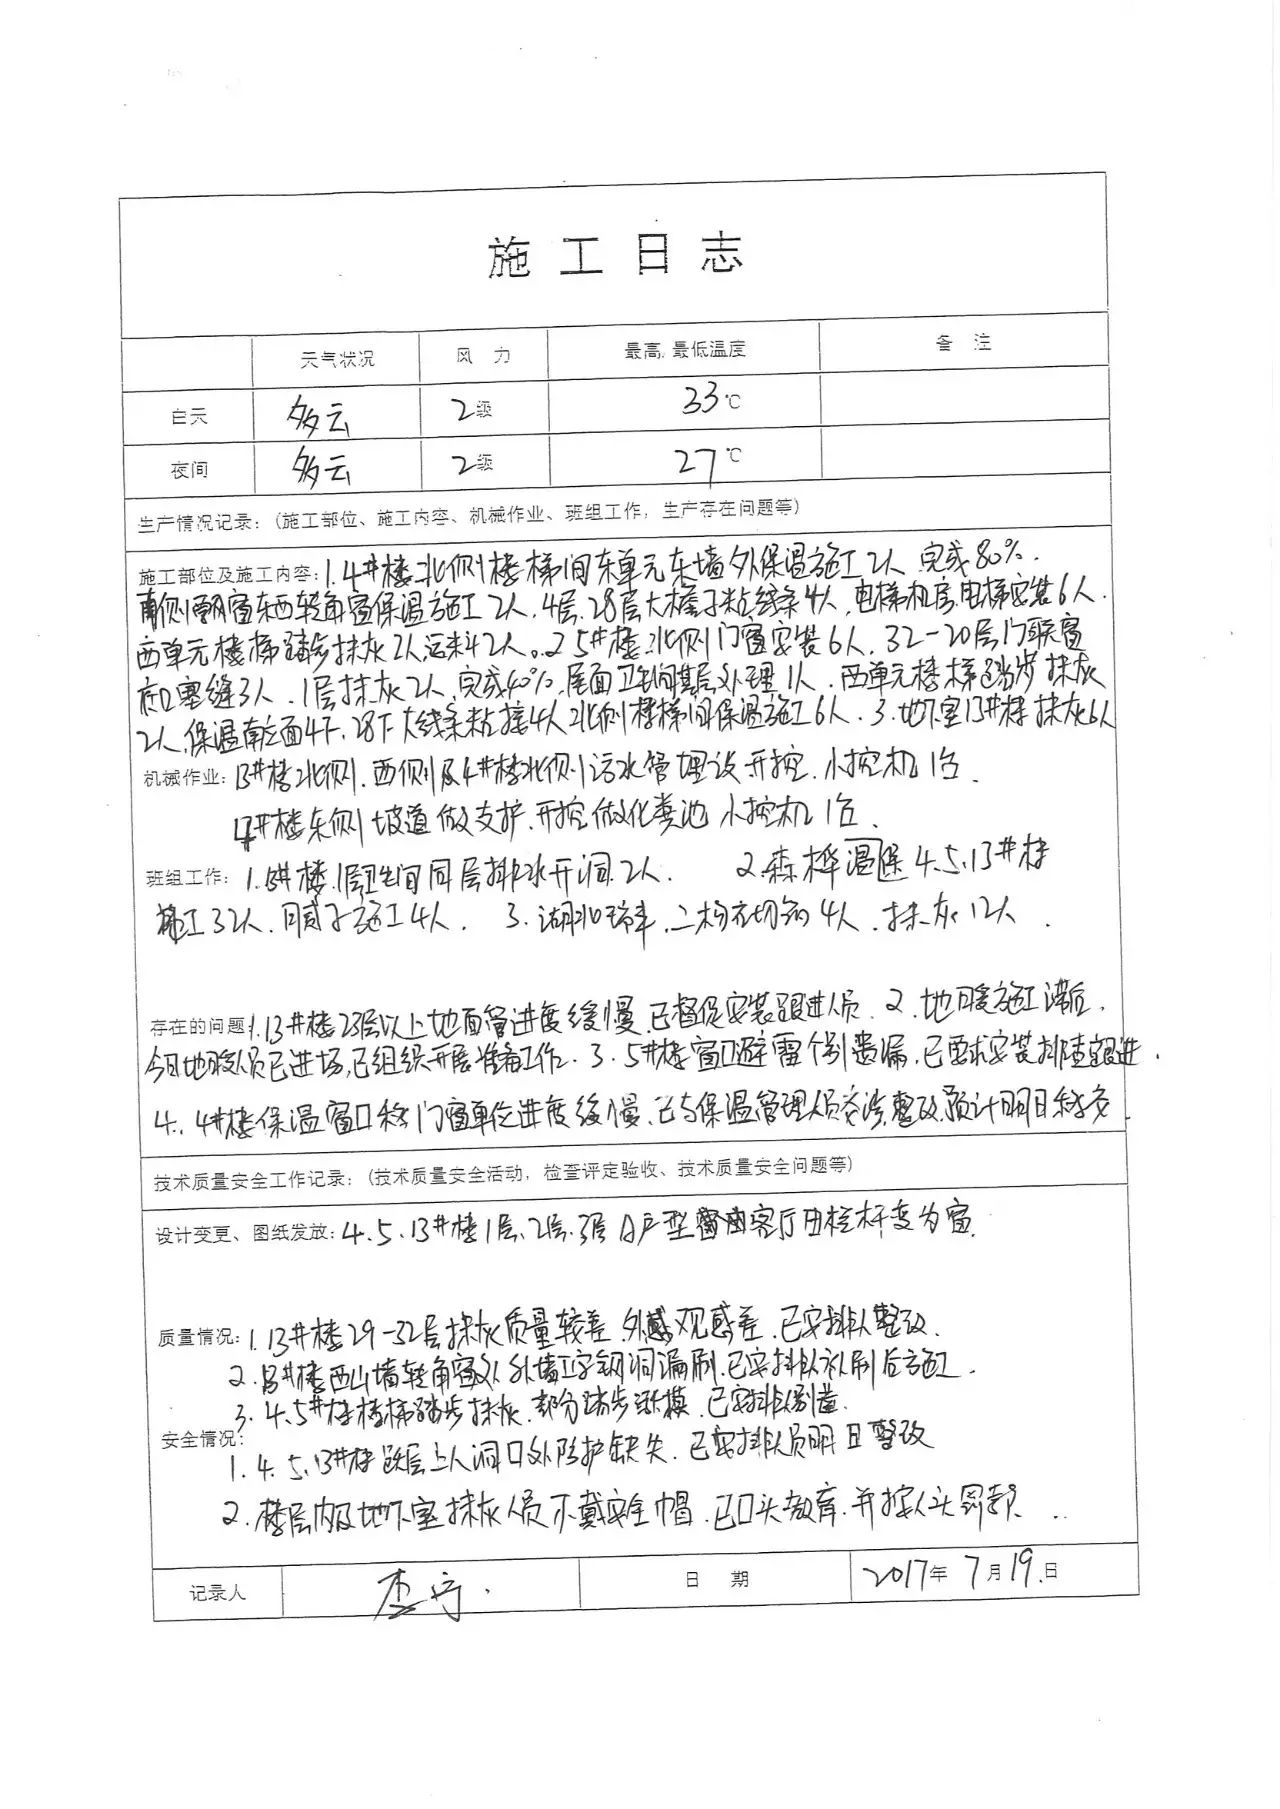 施工日志
天气状况 风 力 最高,最低温度 备 注
白天 多云 2级 33℃
夜间 多云 2级 27℃
生产情况记录:(施工部位、施工内容、机械作业、班组工作,生产存在问题等)
施工部位及施工内容:1.4#楼北侧楼梯间东单元东墙外保温施工2人 完成80%.
南侧窗东西转角窗保温施工2人.4层.28层大檐子粘线条4人,电梯机房电梯安装6人.
西单元楼梯踏步抹灰2人,运料2人。2 5#楼北侧门窗安装6人.32-20层门联窗
窗口塞缝3人.1层抹灰2人,完成40%,屋面卫生间基层处理1人.西单元楼梯踏步抹灰
2人,保温南立面4F.28F大线条粘接4人北侧楼梯间保温施工6人.3.地下室13#楼抹灰6人
机械作业:13#楼北侧.西侧及4#楼北侧污水管埋设开挖.小挖机1台.
4#楼东侧坡道做支护.开挖做化粪池 小挖机1台.
班组工作:1.5#楼.1层卫生间同层排水开洞.2人. 2.森桦温保4.5.13#楼
施工32人.腻子施工4人. 3.湖北瑞丰,二构充切筋4人.抹灰12人.
存在的问题:1.13#楼23层以上地面管进度缓慢.已督促安装跟进人员.2.地暖施工滞后.
今日地暖人员已进场,已组织开展准备工作.3.5#楼窗口避雷个别遗漏,已要求安装排查跟进.
4.4#楼保温窗口移门窗单位进度缓慢.已与保温管理人员交涉整改.预计明日移交.
技术质量安全工作记录:(技术质量安全活动,检查评定验收、技术质量安全问题等)
设计变更、图纸发放:4.5.13#楼1层、2层、3层A户型客厅由栏杆变为窗.
质量情况:1.13#楼29-32层抹灰质量较差 外感观感差.已安排人整改.
2.13#楼西山墙转角窗及外墙工字钢洞漏刷.已安排人补刷后施工.
3.4.5#楼楼梯踏步抹灰.部分踏步.已安排人.
安全情况:1.4.5.13#楼跃层上人洞口处防护缺失.已安排人员明日整改
2.楼层内及地下室抹灰人员不戴安全帽.已口头教育.并按人头罚款...
记录人 李宁. 日 期 2017年7月19.日